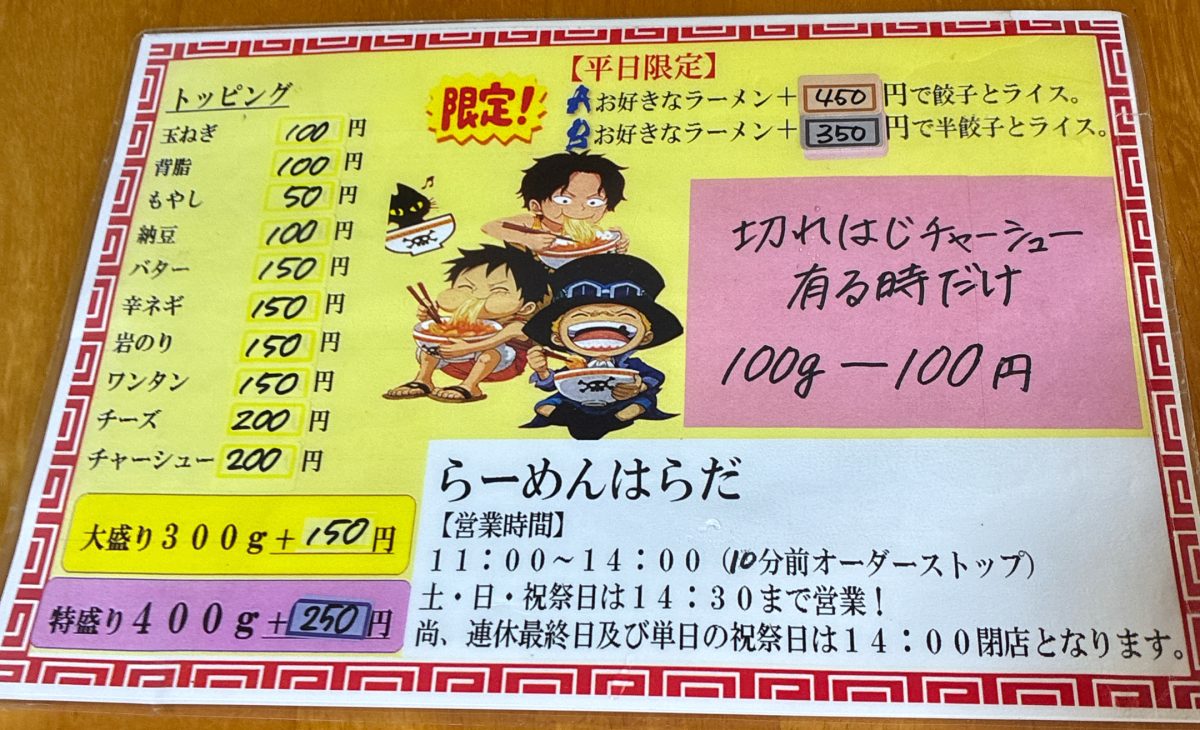 トッピング
玉ねぎ 100 円
背脂 100 円
もやし 50 円
納豆 100 円
バター 150 円
辛ネギ 150 円
岩のり 150 円
ワンタン 150 円
チーズ 200 円
チャーシュー 200 円
大盛り300g+150円
特盛り400g+250円
限定!
【平日限定】
A お好きなラーメン+450円で餃子とライス。
B お好きなラーメン+350円で半餃子とライス。
切れはじチャーシュー
有る時だけ
100g―100円
らーめんはらだ
【営業時間】
11:00~14:00(10分前オーダーストップ)
土・日・祝祭日は14:30まで営業!
尚、連休最終日及び単日の祝祭日は14:00閉店となります。